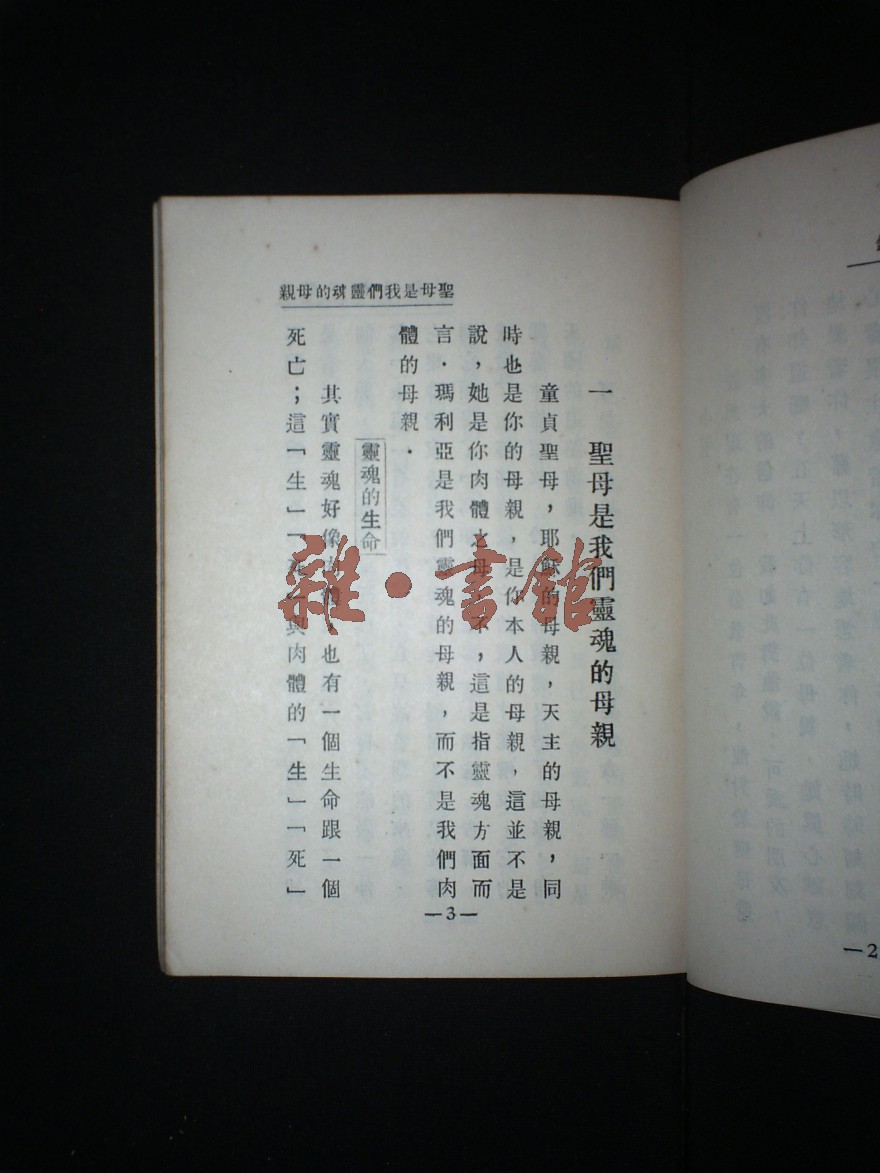 聖母是我們靈魂的母親
一　聖母是我們靈魂的母親
童貞聖母，耶穌的母親，天主的母親，同
時也是你的母親，是你本人的母親，這並不是
說，她是你肉體之母，不，這是指靈魂方面而
言．瑪利亞是我們靈魂的母親，而不是我們肉
體的母親．
靈魂的生命
其實靈魂好像肉體，也有一個生命跟一個
死亡；這「生」「死」與肉體的「生」「死」
—3—
雜·書館
—2